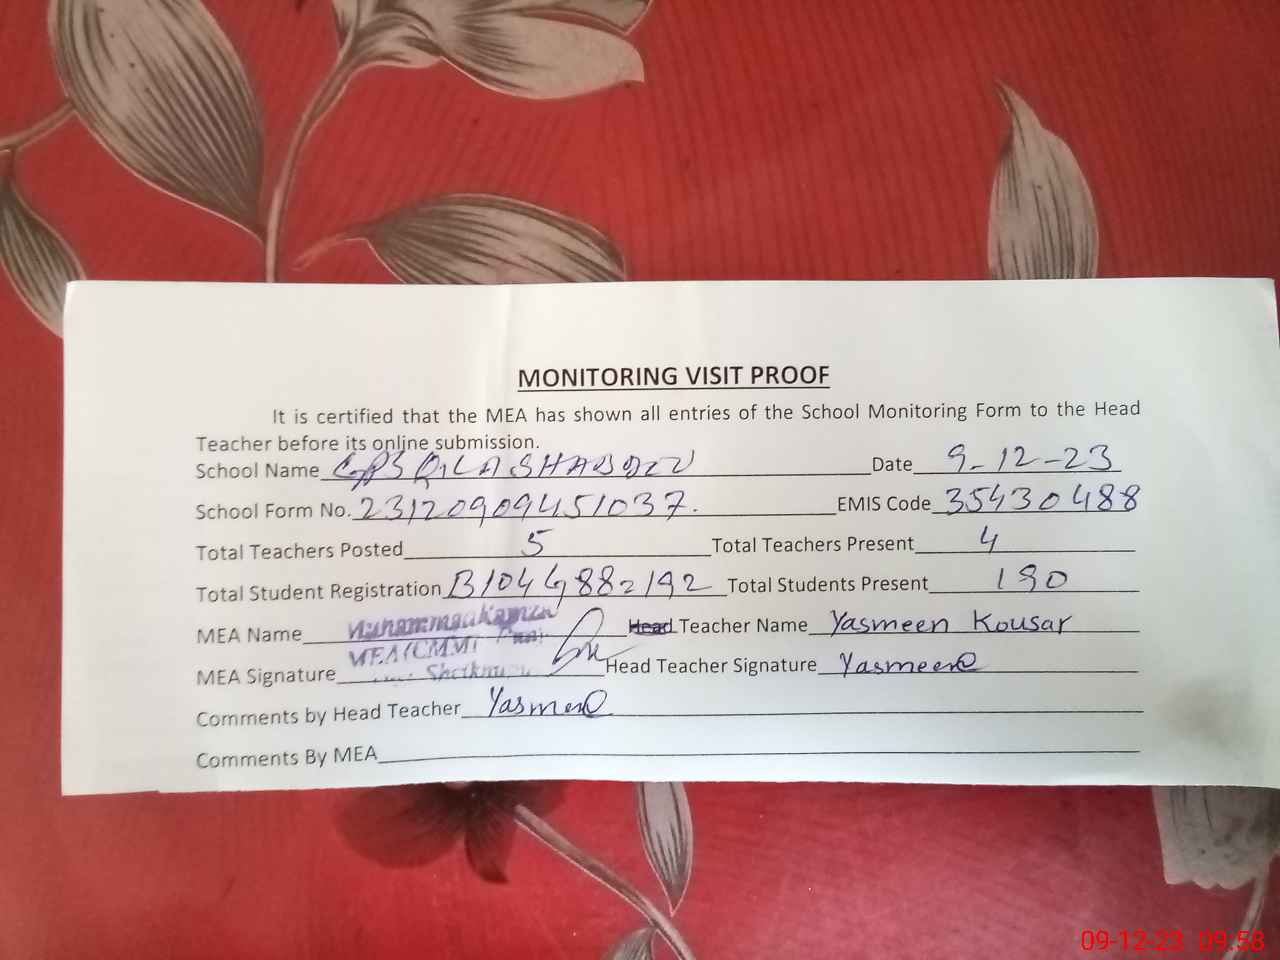 MONITORING VISIT PROOF
It is certified that the MEA has shown all entries of the School Monitoring Form to the Head
Teacher before its online submission.
School Name GPS QILA SHAB Date 9-12-23
School Form No. 23120909451037. EMIS Code 35430488
Total Teachers Posted 5 Total Teachers Present 4
Total Student Registration B104 G88=192 Total Students Present 190
MEA Name Muhammad Kamran Head Teacher Name Yasmeen Kousar
MEA (CMM)
MEA Signature Head Teacher Signature Yasmeen
Comments by Head Teacher Yasmeen
Comments By MEA
09-12-23 09:58